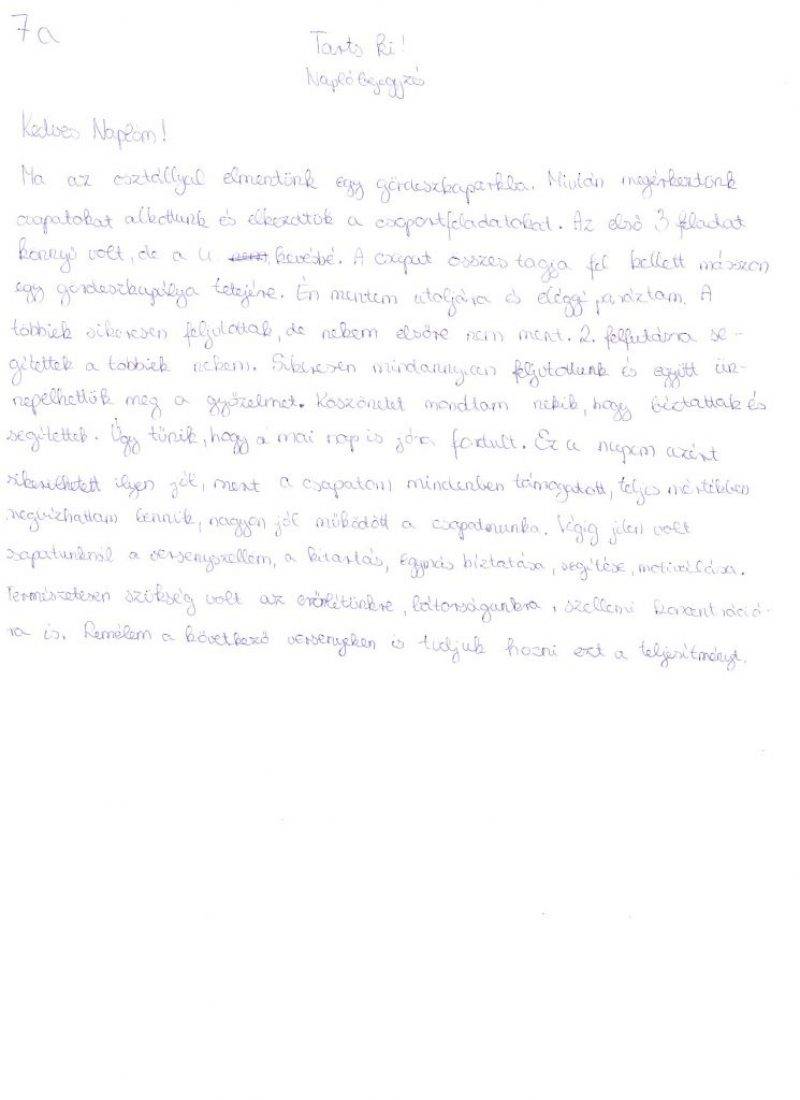 7a
Tarts ki!
Naplóbejegyzés
Kedves Naplóm!
Ma az osztállyal elmentünk egy gördeszkaparkba. Miután megérkeztünk
csapatokat alkottunk és elkezdtük a csoportfeladatokat. Az első 3 feladat
könnyű volt, de a 4 kevésbé. A csapat összes tagja fel kellett másszon
egy gördeszkapálya tetejére. Én mentem utoljára és eléggé paráztam. A
többiek sikeresen feljutottak, de nekem elsőre nem ment. 2. felfutásra se-
gítettek a többiek nekem. Sikeresen mindannyian feljutottunk és együtt ün-
nepelhettük meg a győzelmet. Köszönetet mondtam nekik, hogy bíztattak és
segítettek. Úgy tűnik, hogy a mai nap is jóra fordult. Ez a napom azért
sikerülhetett ilyen jól, mert a csapatom mindenben támogatott, teljes mértékben
megbízhattam bennük, nagyon jól működött a csapatmunka. Végig jelen volt
csapatunknál a versenyszellem, a kitartás, egymás biztatása, segítése, motiválása.
Természetesen szükség volt az erőnlétünkre, bátorságunkra, szellemi koncentráció-
ra is. Remélem a következő versenyeken is tudjuk hozni ezt a teljesítményt.